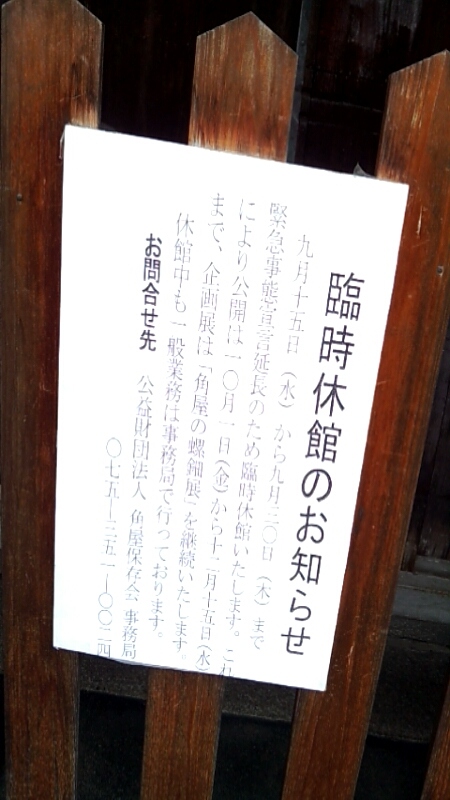 臨時休館のお知らせ
九月十五日（水）から九月三〇日（木）まで
緊急事態宣言延長のため臨時休館いたします。これ
により公開は一〇月一日（金）から十二月十五日（水）
まで、企画展は「角屋の螺鈿展」を継続いたします。
休館中も一般業務は事務局で行っております。
お問合せ先　公益財団法人 角屋保存会 事務局
〇七五―三五一―〇〇二四